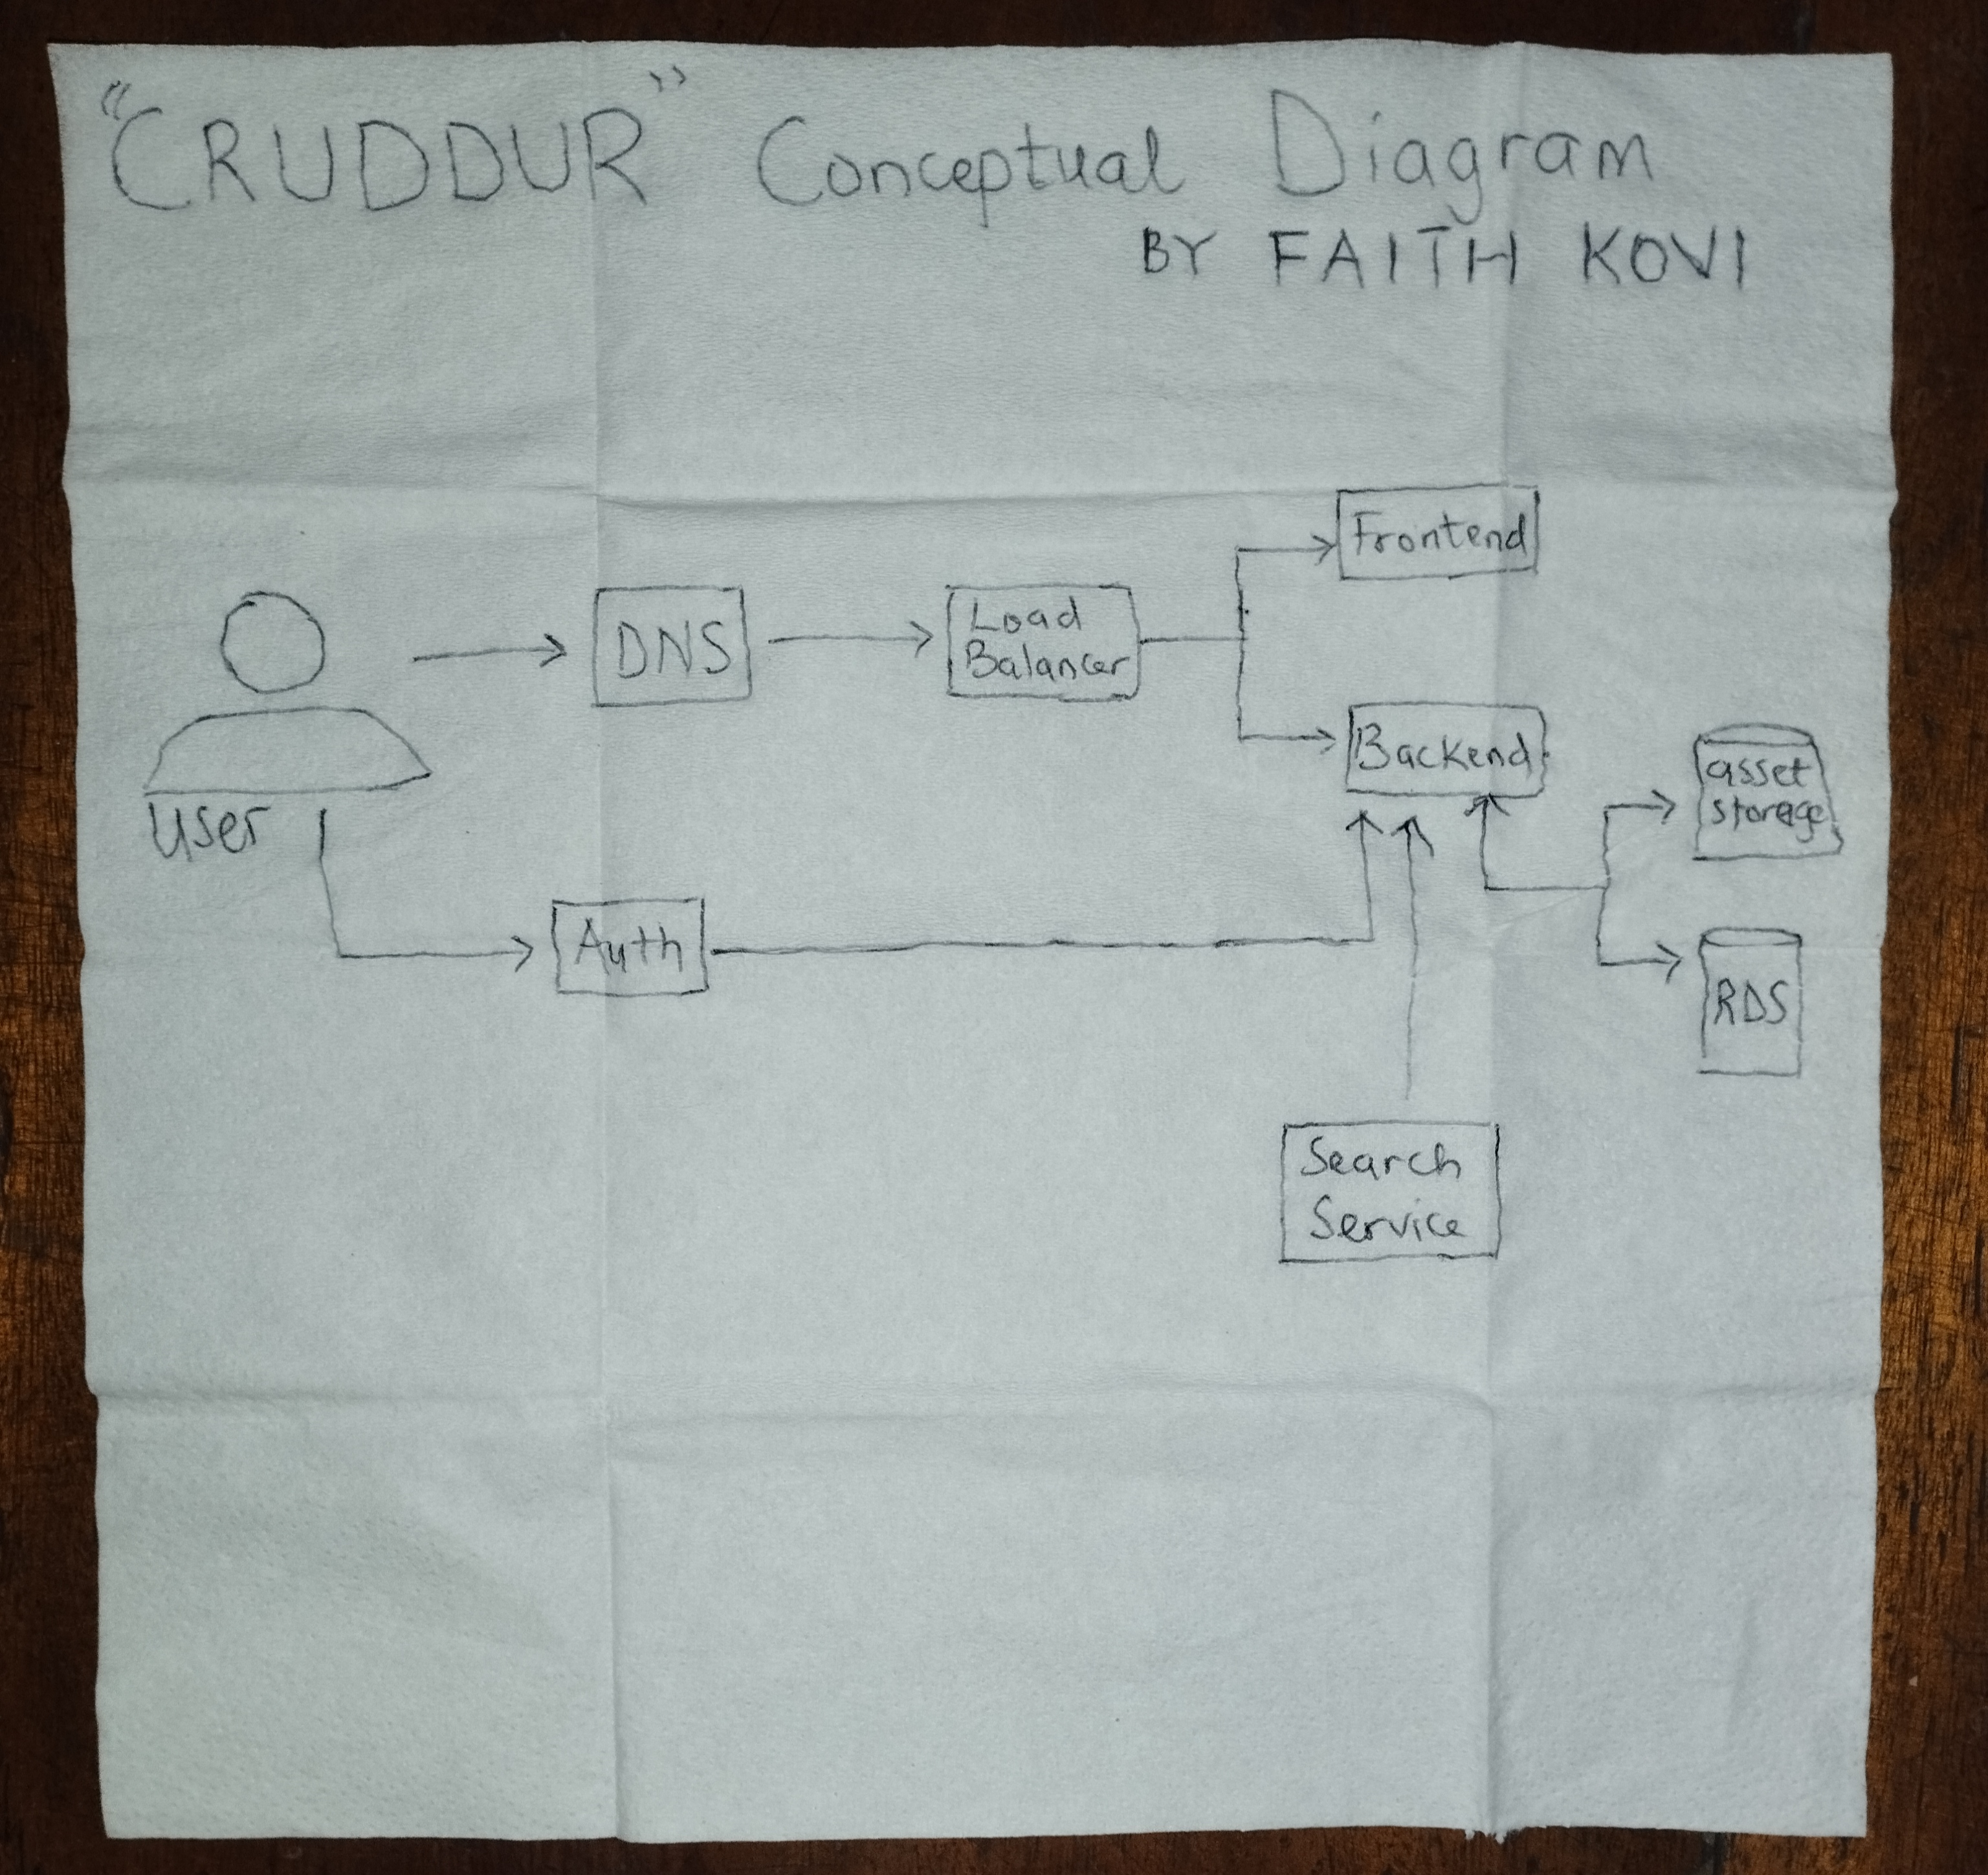 "CRUDDUR" Conceptual Diagram
BY FAITH KOVI
Frontend
DNS
Load
Balancer
Backend
asset
storage
User
Auth
RDS
Search
Service